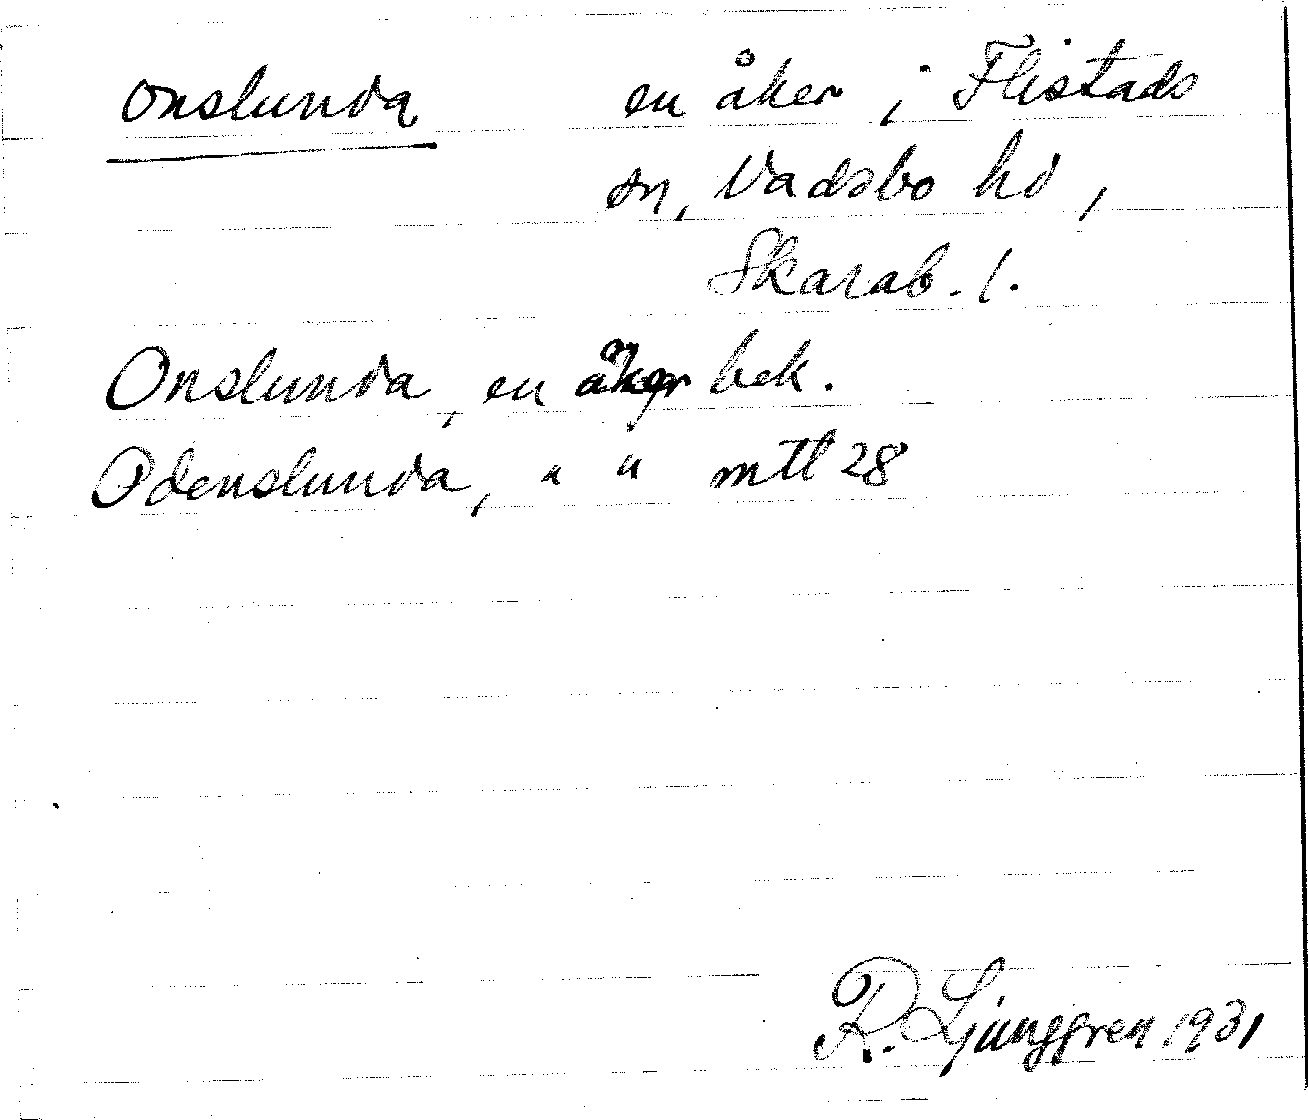 Onslunda en åker i Flistads
sn, Vadsbo hd,
Skarab. l.
Onslunda, en åker bek.
Odenslunda, " " mtl 28
R. Ljunggren 1931